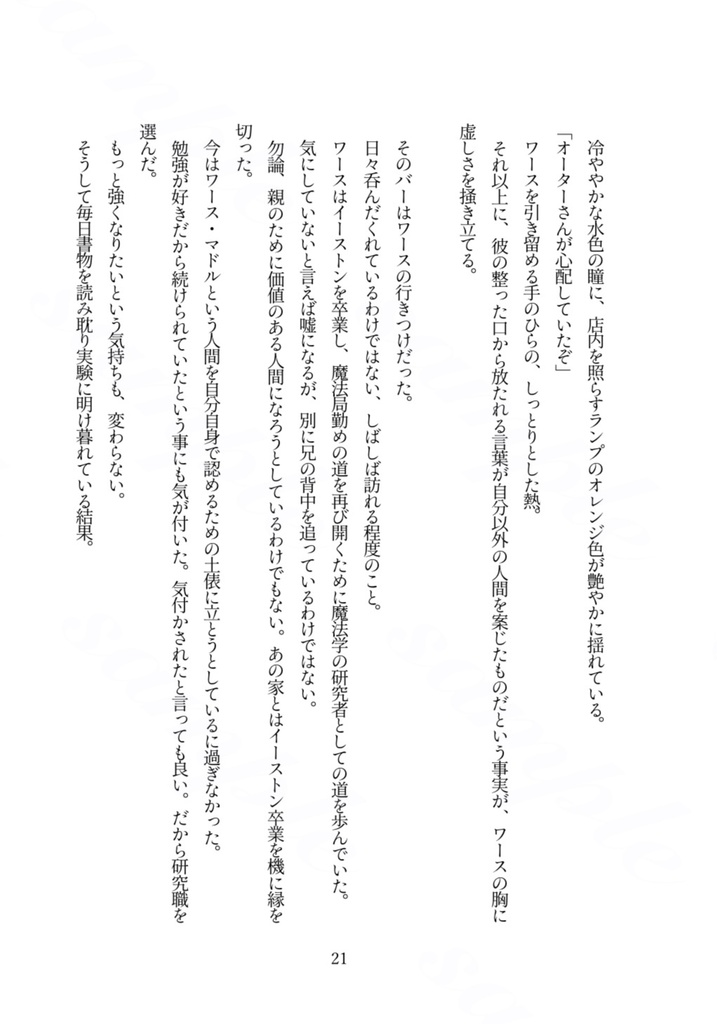 冷ややかな水色の瞳に、店内を照らすランプのオレンジ色が艶やかに揺れている。
「オーターさんが心配していたぞ」
ワースを引き留める手のひらの、しっとりとした熱。
それ以上に、彼の整った口から放たれる言葉が自分以外の人間を案じたものだという事実が、ワースの胸に
虚しさを掻き立てる。
そのバーはワースの行きつけだった。
日々呑んだくれているわけではない、しばしば訪れる程度のこと。
ワースはイーストンを卒業し、魔法局勤めの道を再び開くために魔法学の研究者としての道を歩んでいた。
気にしていないと言えば嘘になるが、別に兄の背中を追っているわけではない。
勿論、親のために価値のある人間になろうとしているわけでもない。あの家とはイーストン卒業を機に縁を
切った。
今はワース・マドルという人間を自分自身で認めるための土俵に立とうとしているに過ぎなかった。
勉強が好きだから続けられていたという事にも気が付いた。気付かされたと言っても良い。だから研究職を
選んだ。
もっと強くなりたいという気持ちも、変わらない。
そうして毎日書物を読み耽り実験に明け暮れている結果。
21
sample
sample
sample
sample